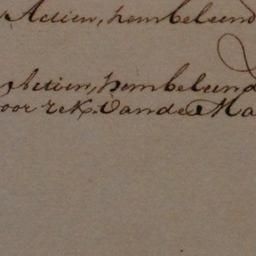 Actien, hembeleend
Actien, hembeleend
oor rek. van de Ma